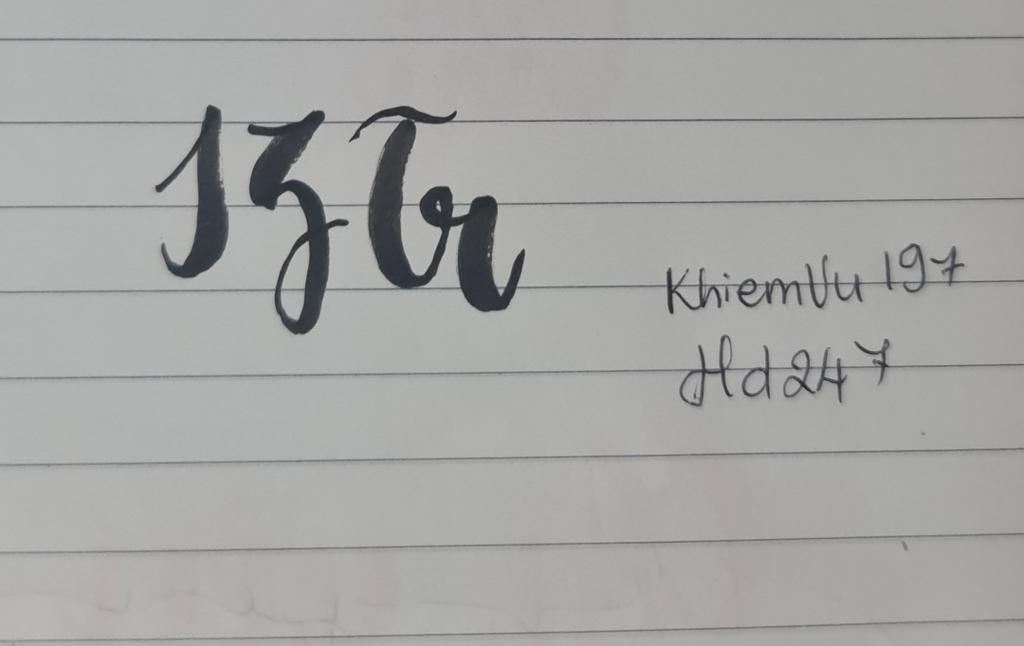 13 Tr
KhiemVu197
Hd247